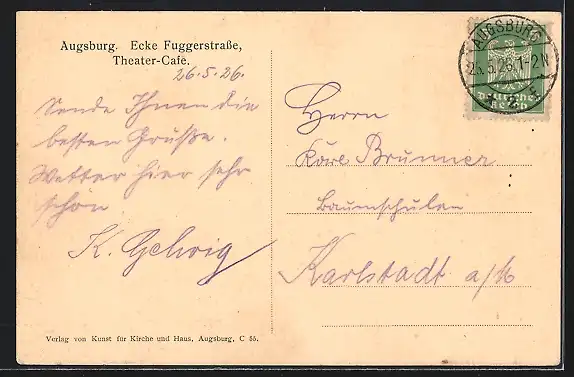 Augsburg. Ecke Fuggerstraße,
Theater-Cafe.
26.5.26.
Sende Ihnen die
besten Grüße.
Wetter hier sehr
schön
K. Gelwig
Verlag von Kunst für Kirche und Haus, Augsburg, C 55.
AUGSBURG
26.5.26.1-2N
Deutsches
Reich
Herrn
Karl Brunner
Baumschulen
Karlstadt a/M